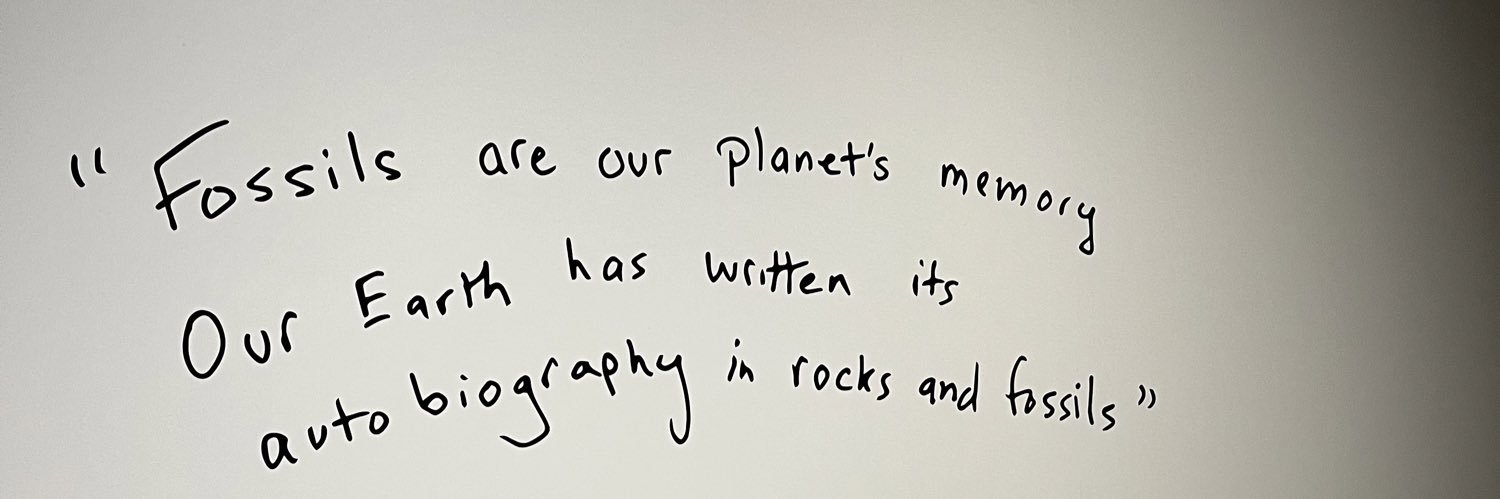 “Fossils are our planet's memory
Our Earth has written its
autobiography in rocks and fossils”